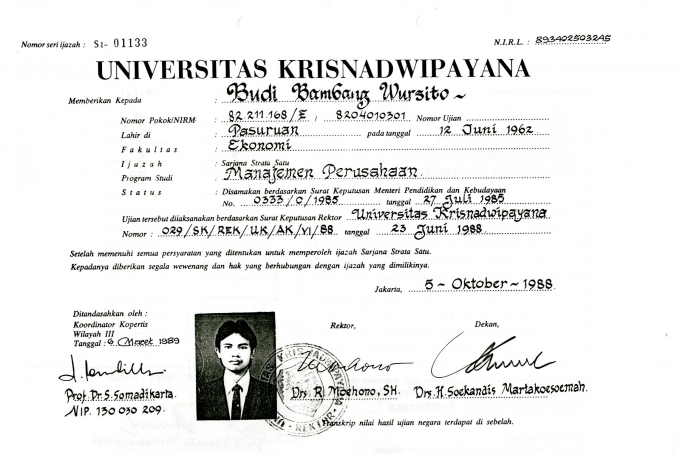 Nomor seri ijazah : S1- 01133
N.I.R.L. : 893402503245
UNIVERSITAS KRISNADWIPAYANA
Memberikan Kepada : Budi Bambang Wursito ~
Nomor Pokok/NIRM : 82.211.168/E / 8204010301 Nomor Ujian
Lahir di : Pasuruan pada tanggal 12 Juni 1962
Fakultas : Ekonomi
Ijazah : Sarjana Strata Satu
Program Studi : Manajemen Perusahaan.
Status : Disamakan berdasarkan Surat Keputusan Menteri Pendidikan dan Kebudayaan
No. 0333/O/1985 tanggal 27 Juli 1985
Ujian tersebut dilaksanakan berdasarkan Surat Keputusan Rektor Universitas Krisnadwipayana
Nomor : 029/SK/REK/UK/AK/VI/88 tanggal 23 Juni 1988
Setelah memenuhi semua persyaratan yang ditentukan untuk memperoleh ijazah Sarjana Strata Satu.
Kepadanya diberikan segala wewenang dan hak yang berhubungan dengan ijazah yang dimilikinya.
Jakarta, 5 - Oktober - 1988
Ditandasahkan oleh :
Koordinator Kopertis
Wilayah III
Tanggal : 6 Maret 1989
Rektor,
Dekan,
Prof. Dr. S. Somadikarta.
NIP. 130 030 209.
Drs. R. Moehono, SH.
Drs. H. Soekandis Martakoesoemah.
REKTOR
Transkrip nilai hasil ujian negara terdapat di sebelah.